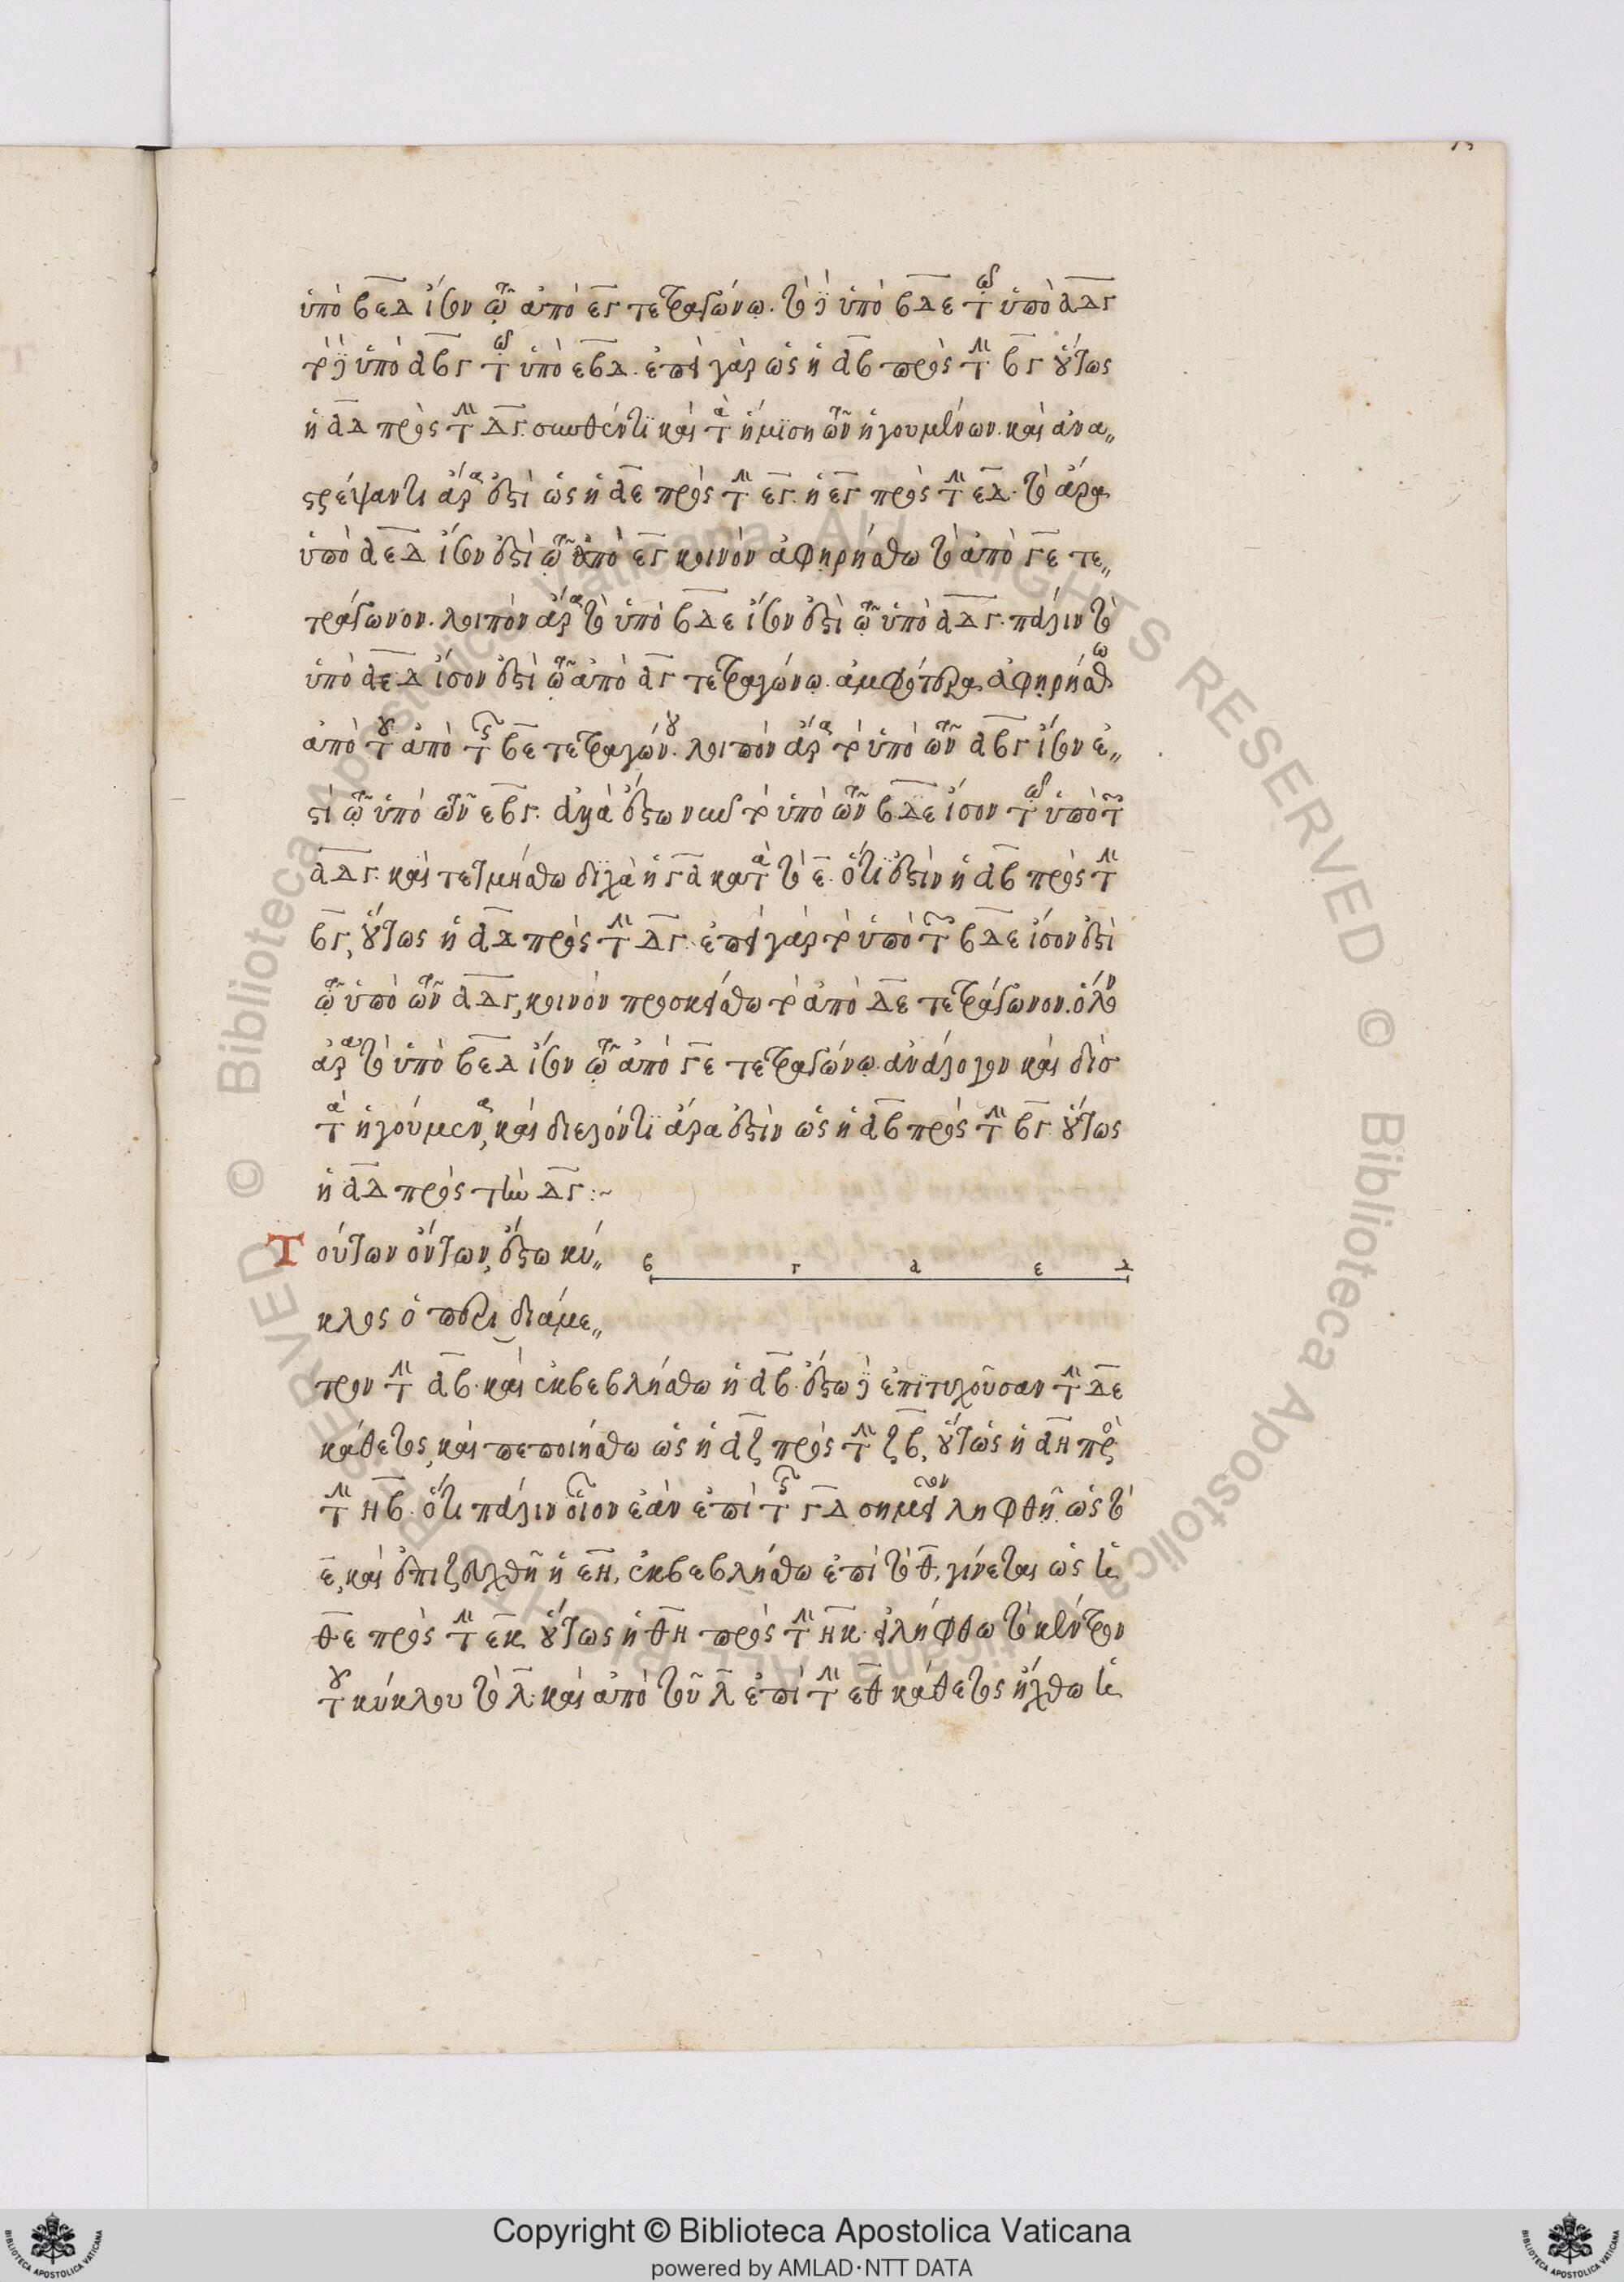 ὑπὸ βεδ ἴσον τῷ ἀπὸ εγ τετραγώνῳ. τὸ δὲ ὑπὸ βδε τῷ ὑπὸ αδγ
τὸ δὲ ὑπὸ αβγ τῷ ὑπὸ εβδ. ἐπεὶ γὰρ ὡς ἡ αβ πρὸς τὴν βγ οὕτως
ἡ αδ πρὸς τὴν δγ. συνθέντι καὶ τὰ ἡμίση τῶν ἡγουμένων. καὶ ἀνα„
στρέψαντι ἄρα ἐστὶ ὡς ἡ αε πρὸς τὴν εγ. ἡ εγ πρὸς τὴν εδ. τὸ ἄρα
ὑπὸ αεδ ἴσον ἐστὶ τῷ ἀπὸ εγ κοινὸν ἀφῃρήσθω τὸ ἀπὸ γε τε„
τράγωνον. λοιπὸν ἄρα τὸ ὑπὸ βδε ἴσον ἐστὶ τῷ ὑπὸ αδγ. πάλιν τὸ
ὑπὸ αεδ ἴσον ἐστὶ τῷ ἀπὸ αγ τετραγώνῳ. ἀμφότερα ἀφῃρήσθω
ἀπὸ τοῦ ἀπὸ τῆς βε τετραγώνου. λοιπὸν ἄρα τὸ ὑπὸ τῶν αβγ ἴσον ἐ„
στὶ τῷ ὑπὸ τῶν εβγ. ἀλλὰ ἔστω νῦν τὸ ὑπὸ τῶν βδε ἴσον τῷ ὑπὸ τῶν
αδγ. καὶ τετμήσθω δίχα ἡ γα κατὰ τὸ ε. ὅτι ἐστὶν ἡ αβ πρὸς τὴν
βγ, οὕτως ἡ αδ πρὸς τὴν δγ. ἐπεὶ γὰρ τὸ ὑπὸ τῶν βδε ἴσον ἐστὶ
τῷ ὑπὸ τῶν αδγ, κοινὸν προσκείσθω τὸ ἀπὸ δε τετράγωνον. ὅλον
ἄρα τὸ ὑπὸ βεδ ἴσον τῷ ἀπὸ γε τετραγώνῳ. ἀνάλογον καὶ δὶσ
τὰ ἡγούμενα, καὶ διελόντι ἄρα ἐστὶν ὡς ἡ αβ πρὸς τὴν βγ οὕτως
ἡ αδ πρὸς τὴν δγ :~
Τούτων ὄντων, ἔστω κύ„
β γ α ε δ
κλος ὁ περὶ διάμε„
τρον τὴν αβ. καὶ ἐκβεβλήσθω ἡ αβ. ἔστω δὲ ἐπὶ τυχοῦσαν τὴν δε
κάθετος, καὶ πεποιήσθω ὡς ἡ αζ πρὸς τὴν ζβ, οὕτως ἡ αη πρὸς
τὴν ηβ. ὅτι πάλιν οἷον ἐὰν ἐπὶ τῆς γδ σημεῖον ληφθῇ ὡς τὸ
ε, καὶ ἐπιζευχθῇ ἡ εη, ἐκβεβλήσθω ἐπὶ τὸ θ, γίνεται ὡς ἡ
θε πρὸς τὴν εκ οὕτως ἡ θη πρὸς τὴν ηκ. εἰλήφθω τὸ κέντρον
τοῦ κύκλου τὸ λ. καὶ ἀπὸ τοῦ λ ἐπὶ τὴν εθ κάθετος ἤχθω ἡ